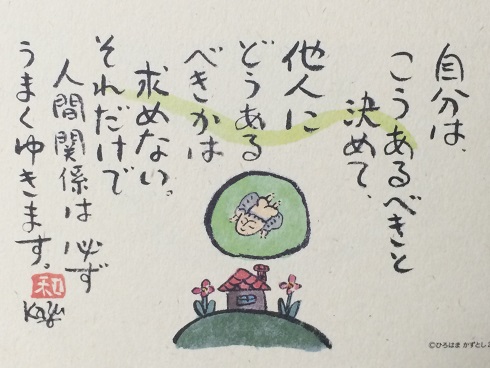 自分は、
こうあるべきと
決めて、
他人に
どうある
べきかは
求めない。
それだけで
人間関係は 必ず
うまくゆきます。
和
Kazu
©ひろはま かずとし